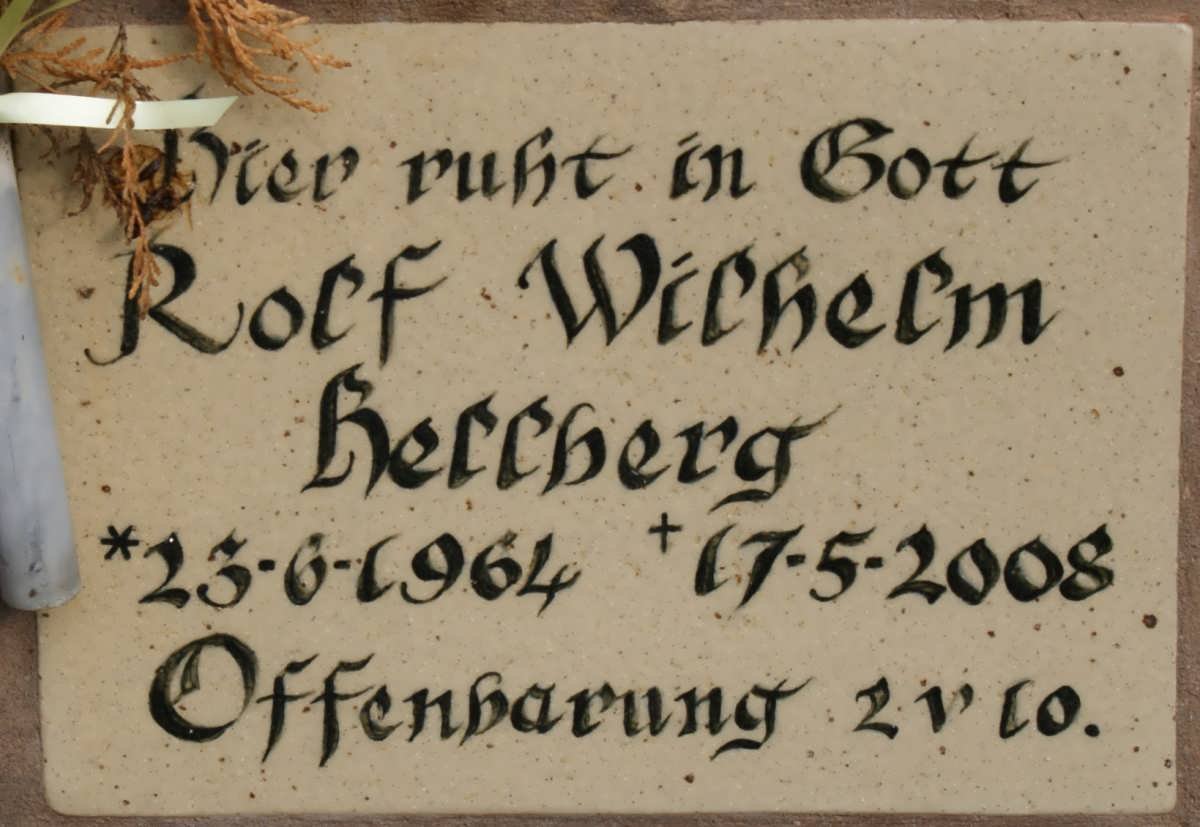 Hier ruht in Gott
Rolf Wilhelm
Hellberg
*23-6-1964 +17-5-2008
Offenbarung 2 v 10.